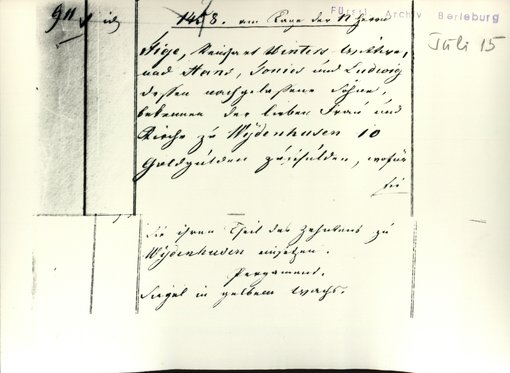 Fürstl. Archiv Berleburg
Juli 15
911
1408. am Tage der 12 Herrn
Fige, Henchens Winters Wittwe,
und Hans, Tonies und Ludwig
dessen nachgelaßene Söhne,
bekennen der lieben Frau und
Kirche zu Wydenhusen 10
Goldgulden zuschulden, wofür
sie
sie ihren Theil des Zehntens zu
Wydenhusen einsetzen.
Pergament.
Siegel in gelbem Wachs.